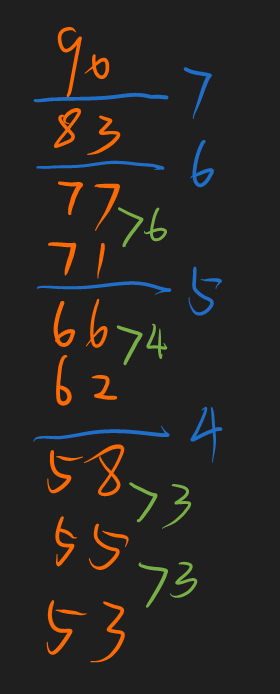 90
7
83
6
77
>6
71
5
66
>4
62
4
58
>3
55
>3
53